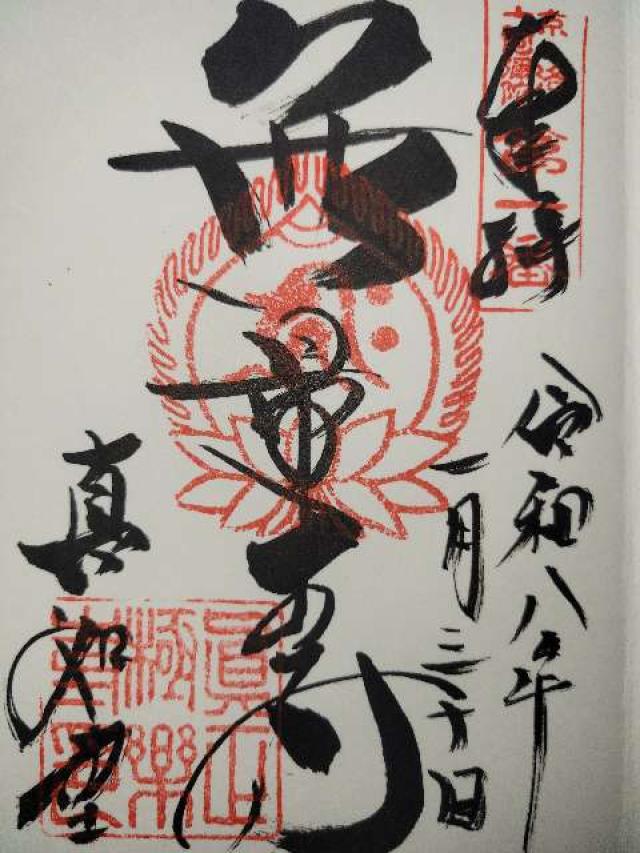 奉拝
令和八年
一月三十日
無量寿
真如堂
京洛
六阿彌陀
第一番
眞正極樂寺印